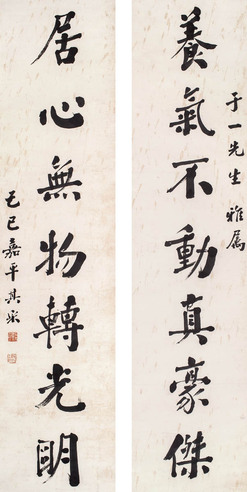 于一先生雅属
養氣不動真豪傑
居心無物轉光明
己巳嘉平其采